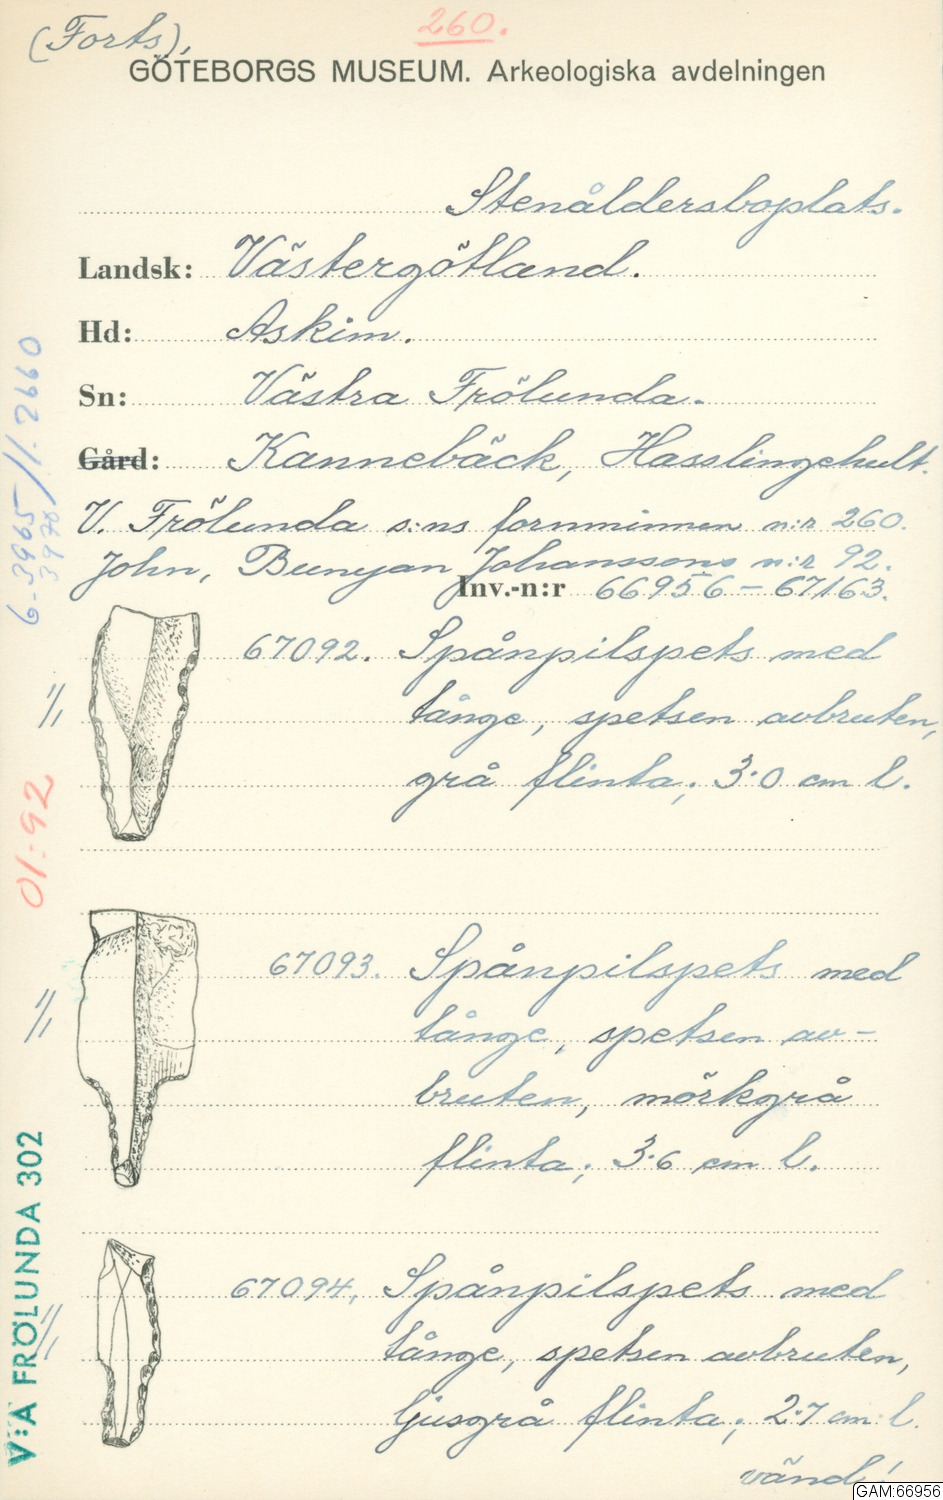 (Forts),
260.
GÖTEBORGS MUSEUM. Arkeologiska avdelningen
Stenåldersboplats.
Landsk: Västergötland.
Hd: Askim.
Sn: Västra Frölunda.
Gård: Kannebäck, Hasslingehult.
V. Frölunda s:ns fornminnen n:r 260.
John, Bunyan Johanssons n:r 92.
Inv.-n:r 66956 – 67163.
67092. Spånpilspets med
tånge, spetsen avbruten,
grå flinta; 3.0 cm l.
67093. Spånpilspets med
tånge, spetsen av-
bruten, mörkgrå
flinta; 3.6 cm l.
67094. Spånpilspets med
tånge, spetsen avbruten,
ljusgrå flinta; 2.7 cm l.
vänd!
6-3965//.2660
3970
01:-92
V:A FRÖLUNDA 302
GAM:66956